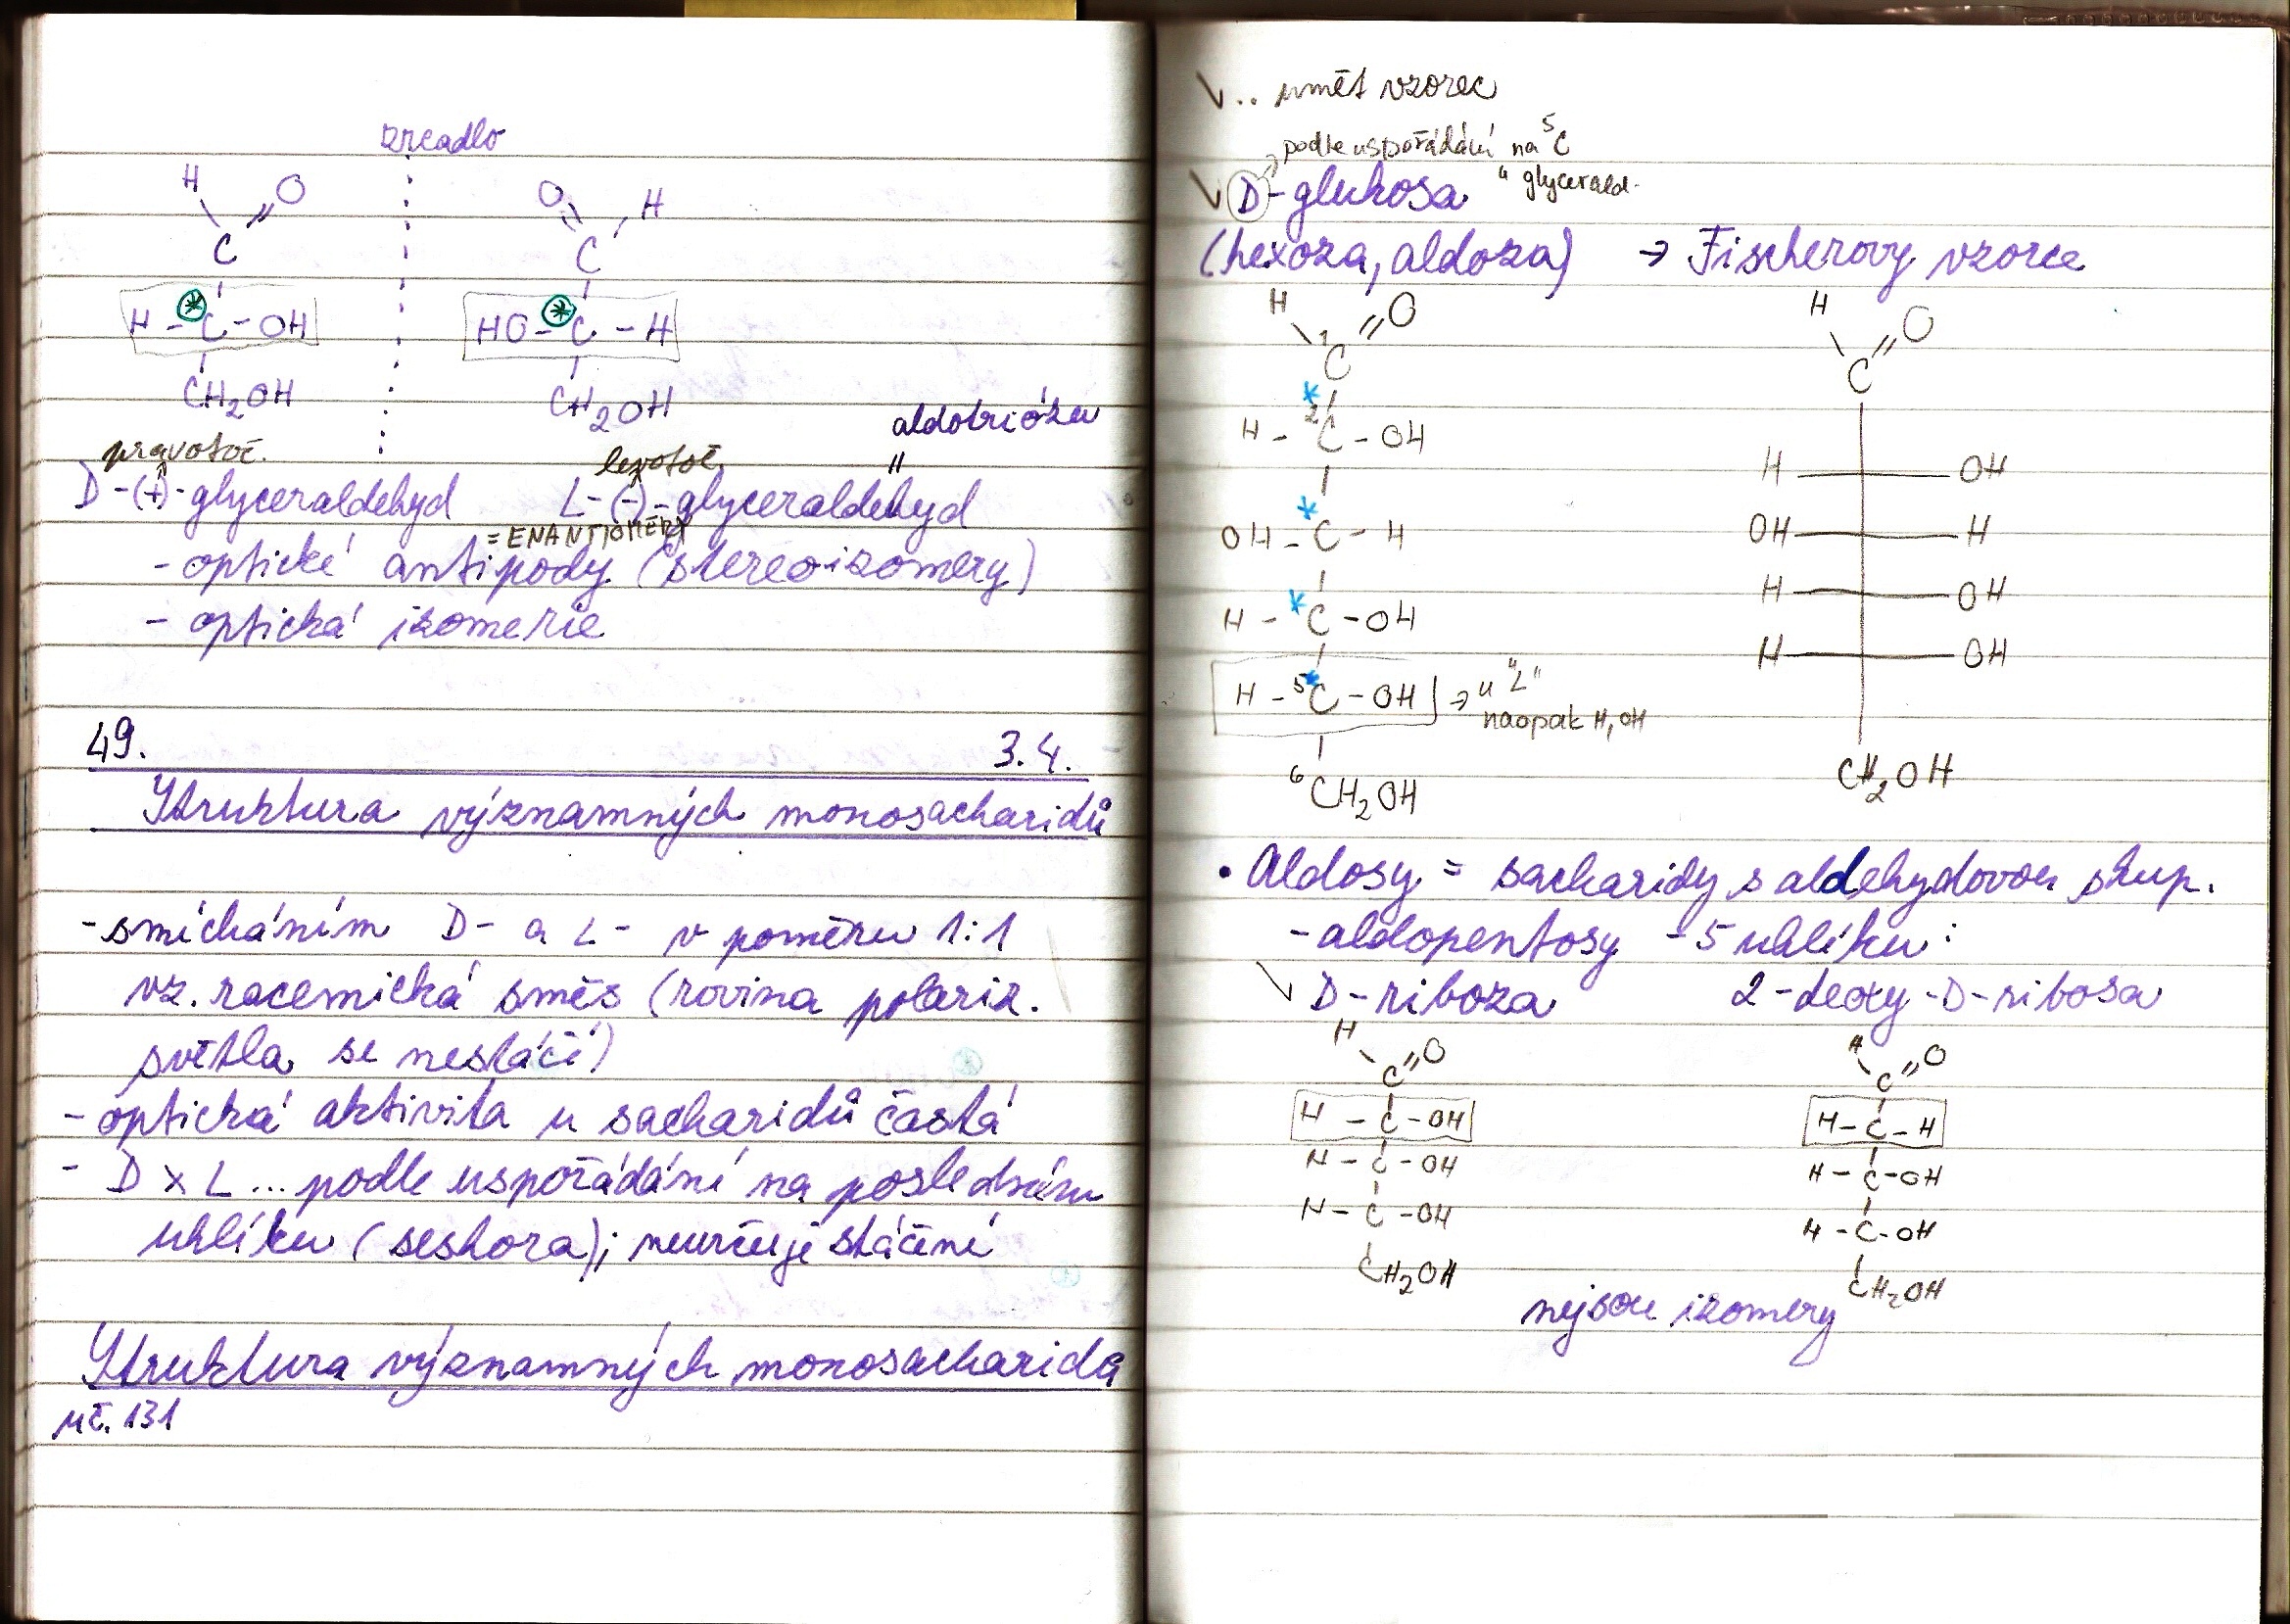 zrcadlo
H O O H
C C
H - C* - OH HO - C* - H
CH2OH CH2OH
aldotrióza
pravotoč. levotoč. "
D-(+)-glyceraldehyd L-(-)-glyceraldehyd
= ENANTIOMERY
- optické antipody (stereoizomery)
- optická izomerie
49. 3.4.
Struktura významných monosacharidů
- smícháním D- a L- v poměru 1:1
vz. racemická směs (rovina polariz.
světla se nestáčí)
- optická aktivita u sacharidů častá
- D x L ... podle uspořádání na posledním
uhlíku (seshora); neurčuje stáčení
Struktura významných monosacharidů
uč. 131
✓.. umět vzorec
→ podle uspořádání na 5C
✓ D-glukosa " glycerald.
(hexoza, aldoza) → Fischerovy vzorce
H O H O
1C C
H - 2C* - OH H OH
OH - C* - H OH H
H - C* - OH H OH
H - 5C* - OH → u "L" H OH
naopak H, OH
6CH2OH CH2OH
• Aldosy = sacharidy s aldehydovou skup.
- aldopentosy - 5 uhlíku:
✓ D-riboza 2-deoxy-D-ribosa
H O H O
C C
H - C - OH H - C - H
H - C - OH H - C - OH
H - C - OH H - C - OH
CH2OH CH2OH
nejsou izomery